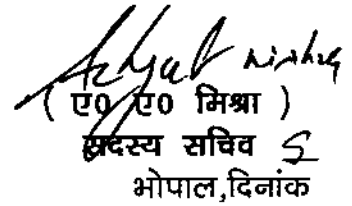 ( ए0 ए0 मिश्रा )
सदस्य सचिव
भोपाल,दिनांक